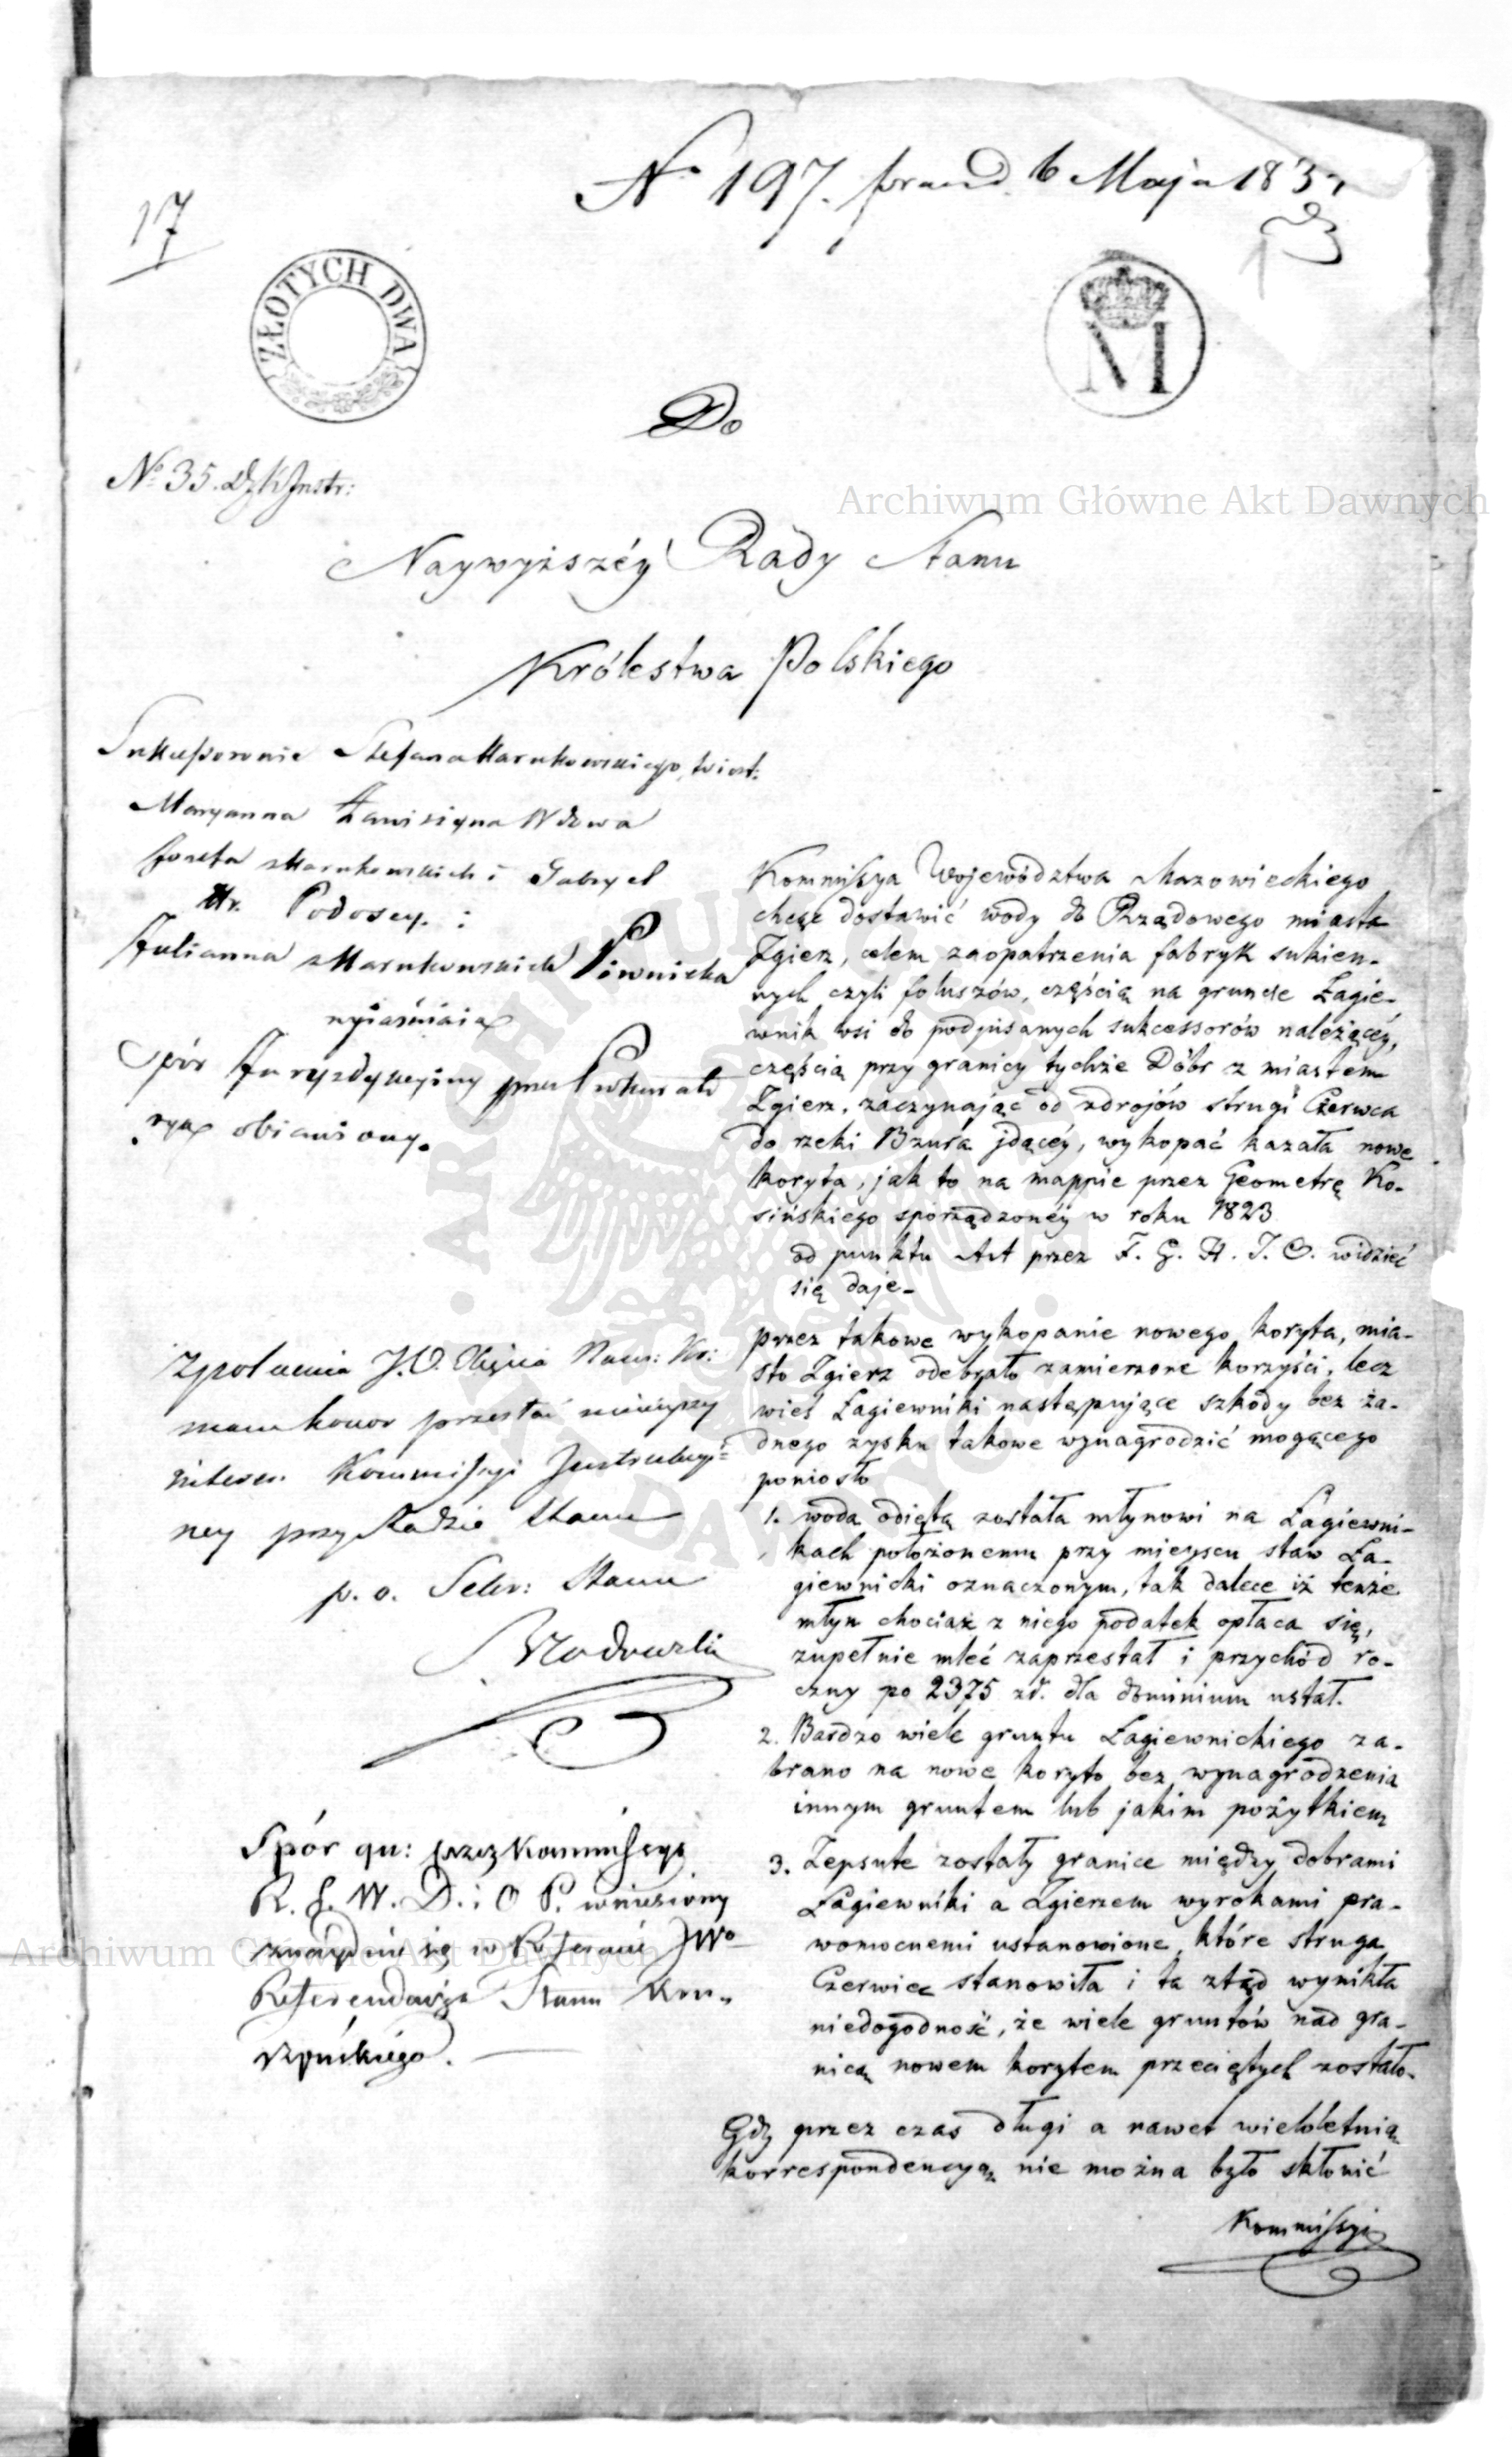 No 197. praes. d. 6 Maja 183
17
ZŁOTYCH DWA
M
Do
No 35. Dz. K. Instr:
Archiwum Główne Akt Dawnych
Naywyższéy Rady Stanu
Królestwa Polskiego
Sukcessorowie Stefana Karnkowskiego, to iest:
Maryanna Wdowa
Józefa z Karnkowskich i Gabryel
Hr. Podoscy. i
Julianna z Karnkowskich Piwnicka
wyiaśniaią
Spór Jurysdykcyiny przez Prokurato
ryą obiawiony.
Kommissya Województwa Mazowieckiego
chcąc dostawić wody do Rządowego miasta
Zgierz, celem zaopatrzenia fabryk sukien-
nych czyli foluszów, częścią na gruncie Łagie-
wnik wsi do podpisanych sukcessorów należącéy,
częścią przy granicy tychże Dóbr z miastem
Zgierz, zaczynając od zdrojów strugi Czerwca
do rzeki Bzura jdącéy, wykopać kazała nowe
koryta, jak to na mappie przez Geometrę Ko-
sińskiego sporządzonéy w roku 1823
od punktu przez F. G. H. J. O. widzieć
się daje-
przez takowe wykopanie nowego koryta, mia-
sto Zgierz odebrało zamierzone korzyści, lecz
wieś Łagiewniki następujące szkody bez ża-
dnego zysku takowe wynagrodzić mogącego
poniosło
1. woda odiętą została młynowi na Łagiewni-
kach położonemu przy mieyscu staw Ła-
giewnicki oznaczonym, tak dalece iż tenże
młyn chociaż z niego podatek opłaca się,
zupełnie mleć zaprzestał i przychód ro-
czny po 2375 zł. dla dominium ustał.
2. Bardzo wiele gruntu Łagiewnickiego za-
brano na nowe koryto bez wynagrodzenia
innym gruntem lub jakim pożytkiem
3. Zepsute zostały granice między dobrami
Łagiewniki a Zgierzem wyrokami pra-
womocnemi ustanowione, które struga
Czerwiec stanowiła i ta ztąd wynikła
niedogodność, że wiele gruntów nad gra-
nicą nowem korytem przeciętych zostało.
Gdy przez czas długi a nawet wieloletnią
korrespondencyą nie można było skłonić
Kommissyi
Z polecenia J. O. Xięcia Nam: Kr:
mam honor przesłać ninieyszy
interes. Kommissyi Instrukcyi=
ney przy Radzie Stanu
p. o. Sekr: Stanu
Spór qu: przez Kommissyą
R. S. W. D. i O P. wniesiony
znayduie się w Referacie JWo
Referendarza Stanu Kru-
szyńskiego.
Archiwum Główne Akt Dawnych
ARCHIWUM GŁÓWNE AKT DAWNYCH